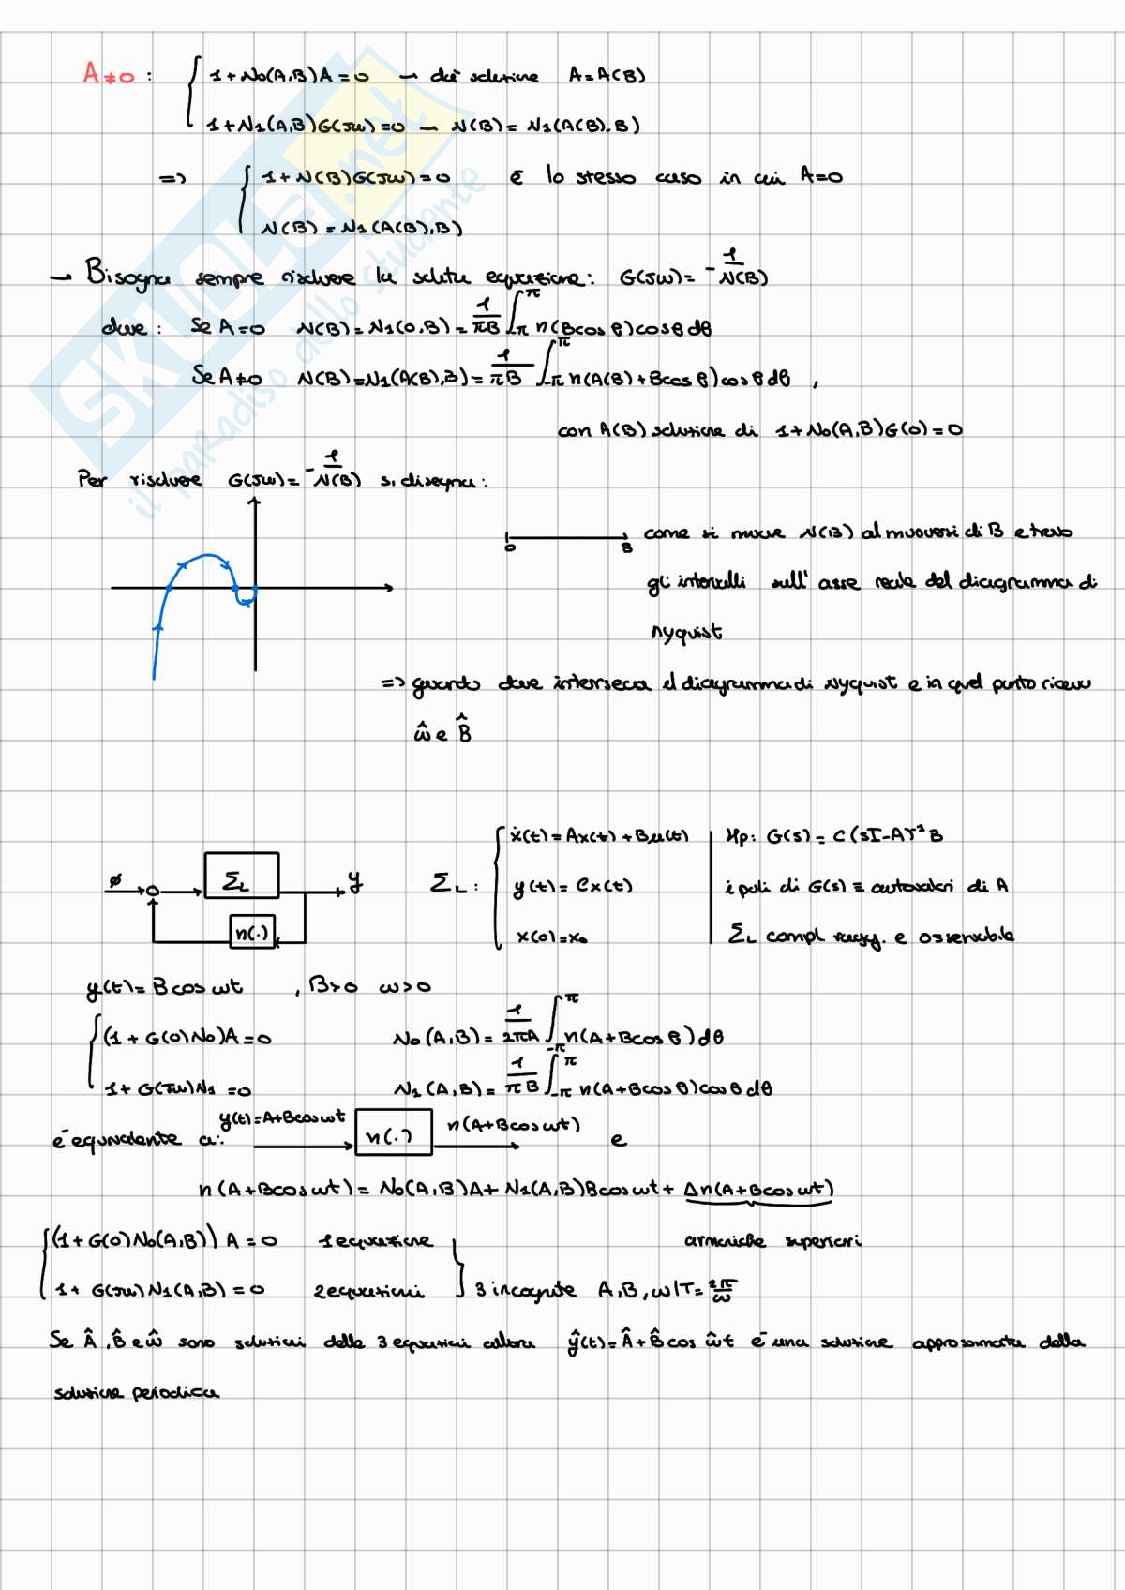 A≠0 : { 1+N₀(A,B)A=0 → dà soluzione A=A(B)
1+N₁(A,B)G(jω)=0 → N(B)=N₁(A(B),B)
=> { 1+N(B)G(jω)=0 è lo stesso caso in cui A=0
N(B)=N₁(A(B),B)
→ Bisogna sempre risolvere la solita equazione: G(jω)= -1/N(B)
dove: Se A=0 N(B)=N₁(0,B)= 1/πB ∫_-π^π n(Bcosθ)cosθdθ
Se A≠0 N(B)=N₁(A(B),B)= 1/πB ∫_-π^π n(A(B)+Bcosθ)cosθdθ ,
con A(B) soluzione di 1+N₀(A,B)G(0)=0
Per risolvere G(jω)= -1/N(B) si disegna:
0 B come si muove N(B) al muoversi di B e trovo
gli intervalli sull'asse reale del diagramma di
Nyquist
=> guardo dove interseca il diagramma di Nyquist e in quel punto ricavo
ω̂ e B̂
ø Σ_L y Σ_L: { ẋ(t)=Ax(t)+Bu(t) | Hp: G(s)=C(sI-A)⁻¹B
n(.) y(t)=Cx(t) | i poli di G(s) ≡ autovalori di A
x(0)=x₀ | Σ_L compl. ragg. e osservabile
y(t)=Bcosωt , B>0 ω>0
{ (1+G(0)N₀)A=0 N₀(A,B)= 1/2πA ∫_-π^π n(A+Bcosθ)dθ
1+G(jω)N₁=0 N₁(A,B)= 1/πB ∫_-π^π n(A+Bcosθ)cosθdθ
è equivalente a: y(t)=A+Bcosωt n(.) n(A+Bcosωt) e
n(A+Bcosωt)=N₀(A,B)A+N₁(A,B)Bcosωt+Δn(A+Bcosωt)
{ (1+G(0)N₀(A,B))A=0 1 equazione armoniche superiori
1+G(jω)N₁(A,B)=0 2 equazioni } 3 incognite A,B,ω/T=2π/ω
Se Â,B̂ e ω̂ sono soluzioni delle 3 equazioni allora ŷ(t)=Â+B̂cosω̂t è una soluzione approssimata della
soluzione periodica
SKUOLA.net
il paradiso dello studente